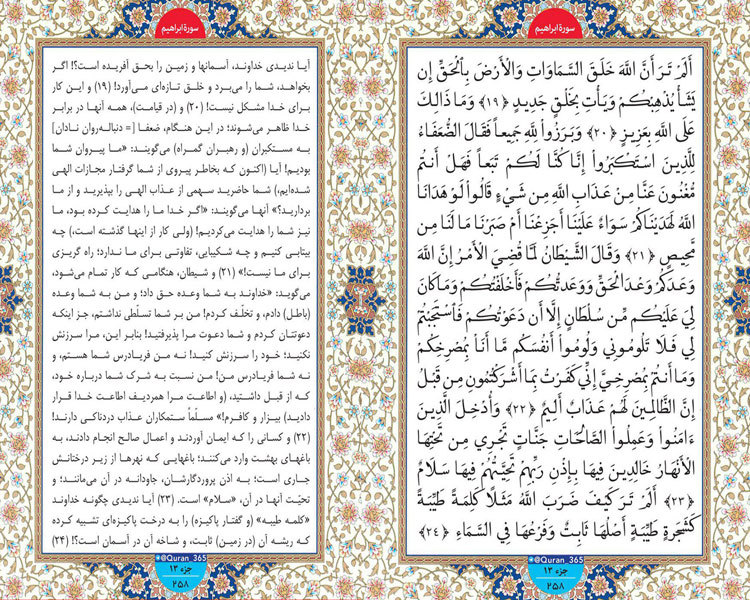 سورة ابراهیم
أَلَمْ تَرَ أَنَّ اللَّهَ خَلَقَ السَّمَاوَاتِ وَالْأَرْضَ بِالْحَقِّ إِن
يَشَأْ يُذْهِبْكُمْ وَيَأْتِ بِخَلْقٍ جَدِيدٍ ﴿١٩﴾ وَمَا ذَٰلِكَ
عَلَى اللَّهِ بِعَزِيزٍ ﴿٢٠﴾ وَبَرَزُوا لِلَّهِ جَمِيعاً فَقَالَ الضُّعَفَاءُ
لِلَّذِينَ اسْتَكْبَرُوا إِنَّا كُنَّا لَكُمْ تَبَعاً فَهَلْ أَنتُم
مُّغْنُونَ عَنَّا مِنْ عَذَابِ اللَّهِ مِن شَيْءٍ قَالُوا لَوْ هَدَانَا
اللَّهُ لَهَدَيْنَاكُمْ سَوَاءٌ عَلَيْنَا أَجَزِعْنَا أَمْ صَبَرْنَا مَا لَنَا مِن
مَّحِيصٍ ﴿٢١﴾ وَقَالَ الشَّيْطَانُ لَمَّا قُضِيَ الْأَمْرُ إِنَّ اللَّهَ
وَعَدَكُمْ وَعْدَ الْحَقِّ وَوَعَدتُّكُمْ فَأَخْلَفْتُكُمْ وَمَا كَانَ
لِيَ عَلَيْكُم مِّن سُلْطَانٍ إِلَّا أَن دَعَوْتُكُمْ فَاسْتَجَبْتُمْ
لِي فَلَا تَلُومُونِي وَلُومُوا أَنفُسَكُم مَّا أَنَا بِمُصْرِخِكُمْ
وَمَا أَنتُم بِمُصْرِخِيَّ إِنِّي كَفَرْتُ بِمَا أَشْرَكْتُمُونِ مِن قَبْلُ
إِنَّ الظَّالِمِينَ لَهُمْ عَذَابٌ أَلِيمٌ ﴿٢٢﴾ وَأُدْخِلَ الَّذِينَ
ءَامَنُوا وَعَمِلُوا الصَّالِحَاتِ جَنَّاتٍ تَجْرِي مِن تَحْتِهَا
الْأَنْهَارُ خَالِدِينَ فِيهَا بِإِذْنِ رَبِّهِمْ تَحِيَّتُهُمْ فِيهَا سَلَامٌ
﴿٢٣﴾ أَلَمْ تَرَ كَيْفَ ضَرَبَ اللَّهُ مَثَلًا كَلِمَةً طَيِّبَةً
كَشَجَرَةٍ طَيِّبَةٍ أَصْلُهَا ثَابِتٌ وَفَرْعُهَا فِي السَّمَاءِ ﴿٢٤﴾
@Quran_365
جزء ١٣
٢٥٨
سورة ابراهیم
آیا ندیدی خداوند، آسمانها و زمین را بحق آفریده است؟! اگر
بخواهد، شما را می‌برد و خلق تازه‌ای می‌آورد! (۱۹) و این کار
برای خدا مشکل نیست! (۲۰) و (در قیامت)، همه آنها در برابر
خدا ظاهر می‌شوند؛ در این هنگام، ضعفا [= دنباله‌روان نادان]
به مستکبران (و رهبران گمراه) می‌گویند: «ما پیروان شما
بودیم! آیا (اکنون که بخاطر پیروی از شما گرفتار مجازات الهی
شده‌ایم،) شما حاضرید سهمی از عذاب الهی را بپذیرید و از ما
بردارید؟» آنها می‌گویند: «اگر خدا ما را هدایت کرده بود، ما
نیز شما را هدایت می‌کردیم! (ولی کار از اینها گذشته است،) چه
بیتابی کنیم و چه شکیبایی، تفاوتی برای ما ندارد؛ راه گریزی
برای ما نیست!» (۲۱) و شیطان، هنگامی که کار تمام می‌شود،
می‌گوید: «خداوند به شما وعده حق داد؛ و من به شما وعده
(باطل) دادم، و تخلّف کردم! من بر شما تسلّطی نداشتم، جز اینکه
دعوتتان کردم و شما دعوت مرا پذیرفتید! بنابر این، مرا سرزنش
نکنید؛ خود را سرزنش کنید! نه من فریادرس شما هستم، و
نه شما فریادرس من! من نسبت به شرک شما درباره خود،
که از قبل داشتید، (و اطاعت مرا همردیف اطاعت خدا قرار
دادید) بیزار و کافرم!» مسلّماً ستمکاران عذاب دردناکی دارند!
(۲۲) و کسانی را که ایمان آوردند و اعمال صالح انجام دادند، به
باغهای بهشت وارد می‌کنند؛ باغهایی که نهرها از زیر درختانش
جاری است؛ به اذن پروردگارشان، جاودانه در آن می‌مانند؛ و
تحیّت آنها در آن، «سلام» است. (۲۳) آیا ندیدی چگونه خداوند
«کلمه طیبه» (و گفتار پاکیزه) را به درخت پاکیزه‌ای تشبیه کرده
که ریشه آن (در زمین) ثابت، و شاخه آن در آسمان است؟! (۲۴)
@Quran_365
جزء ١٣
٢٥٨